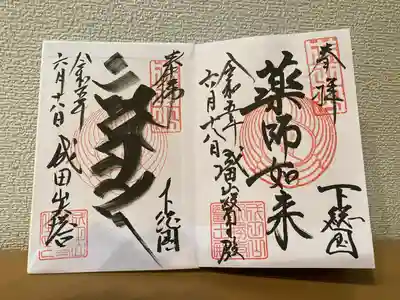 奉拝
下総国
薬師如来
令和五年
六月十八日
成田山醫王殿
奉拝
下総国
令和五年
六月十八日
成田山